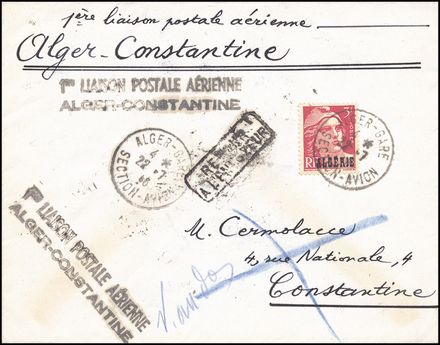 1ère liaison postale aérienne
Alger-Constantine
1re LIAISON POSTALE AÉRIENNE
ALGER-CONSTANTINE
ALGER-GARE
SECTION-AVION
RETOUR
A L'ENVOYEUR
ALGÉRIE
ALGER-GARE
SECTION-AVION
1re LIAISON POSTALE AÉRIENNE
ALGER-CONSTANTINE
M. Cermolacce
4, rue Nationale, 4
Constantine
V. au dos